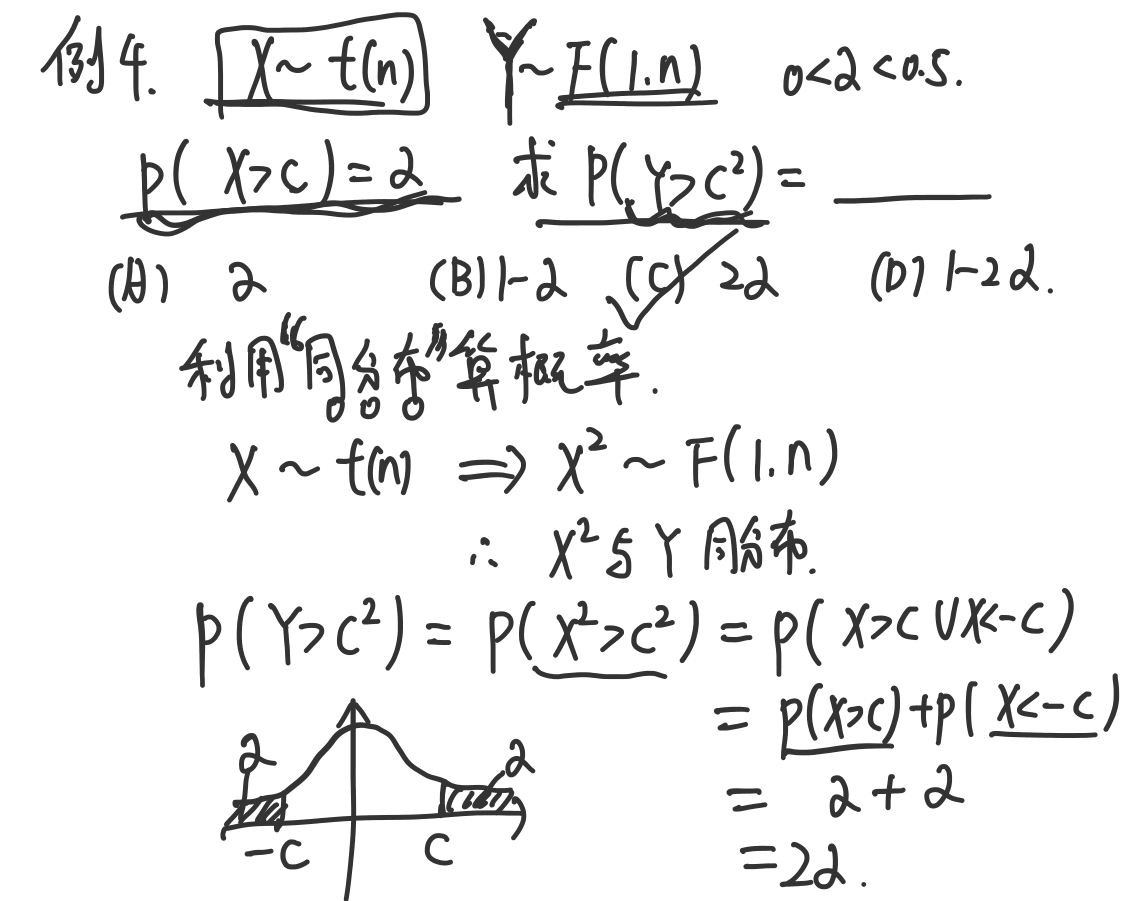 例4. X~t(n) Y~F(1.n) 0<α<0.5.
P(X>c)=α 求 P(Y>c²)=____
(A) α (B) 1-α (C) 2α (D) 1-2α.
利用“同分布”算概率.
X~t(n) ⇒ X²~F(1.n)
∴ X²与Y同分布.
P(Y>c²) = P(X²>c²) = P(X>c∪X<-c)
= P(X>c)+P(X<-c)
= α+α
=2α.
α α
-c c